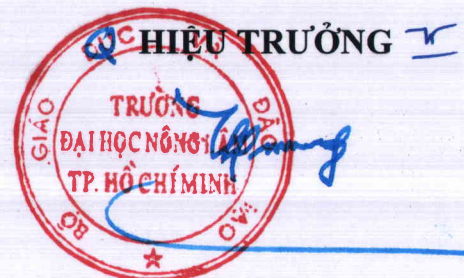 HIỆU TRƯỞNG
BỘ GIÁO DỤC VÀ ĐÀO TẠO
TRƯỜNG
ĐẠI HỌC NÔNG LÂM
TP. HỒ CHÍ MINH